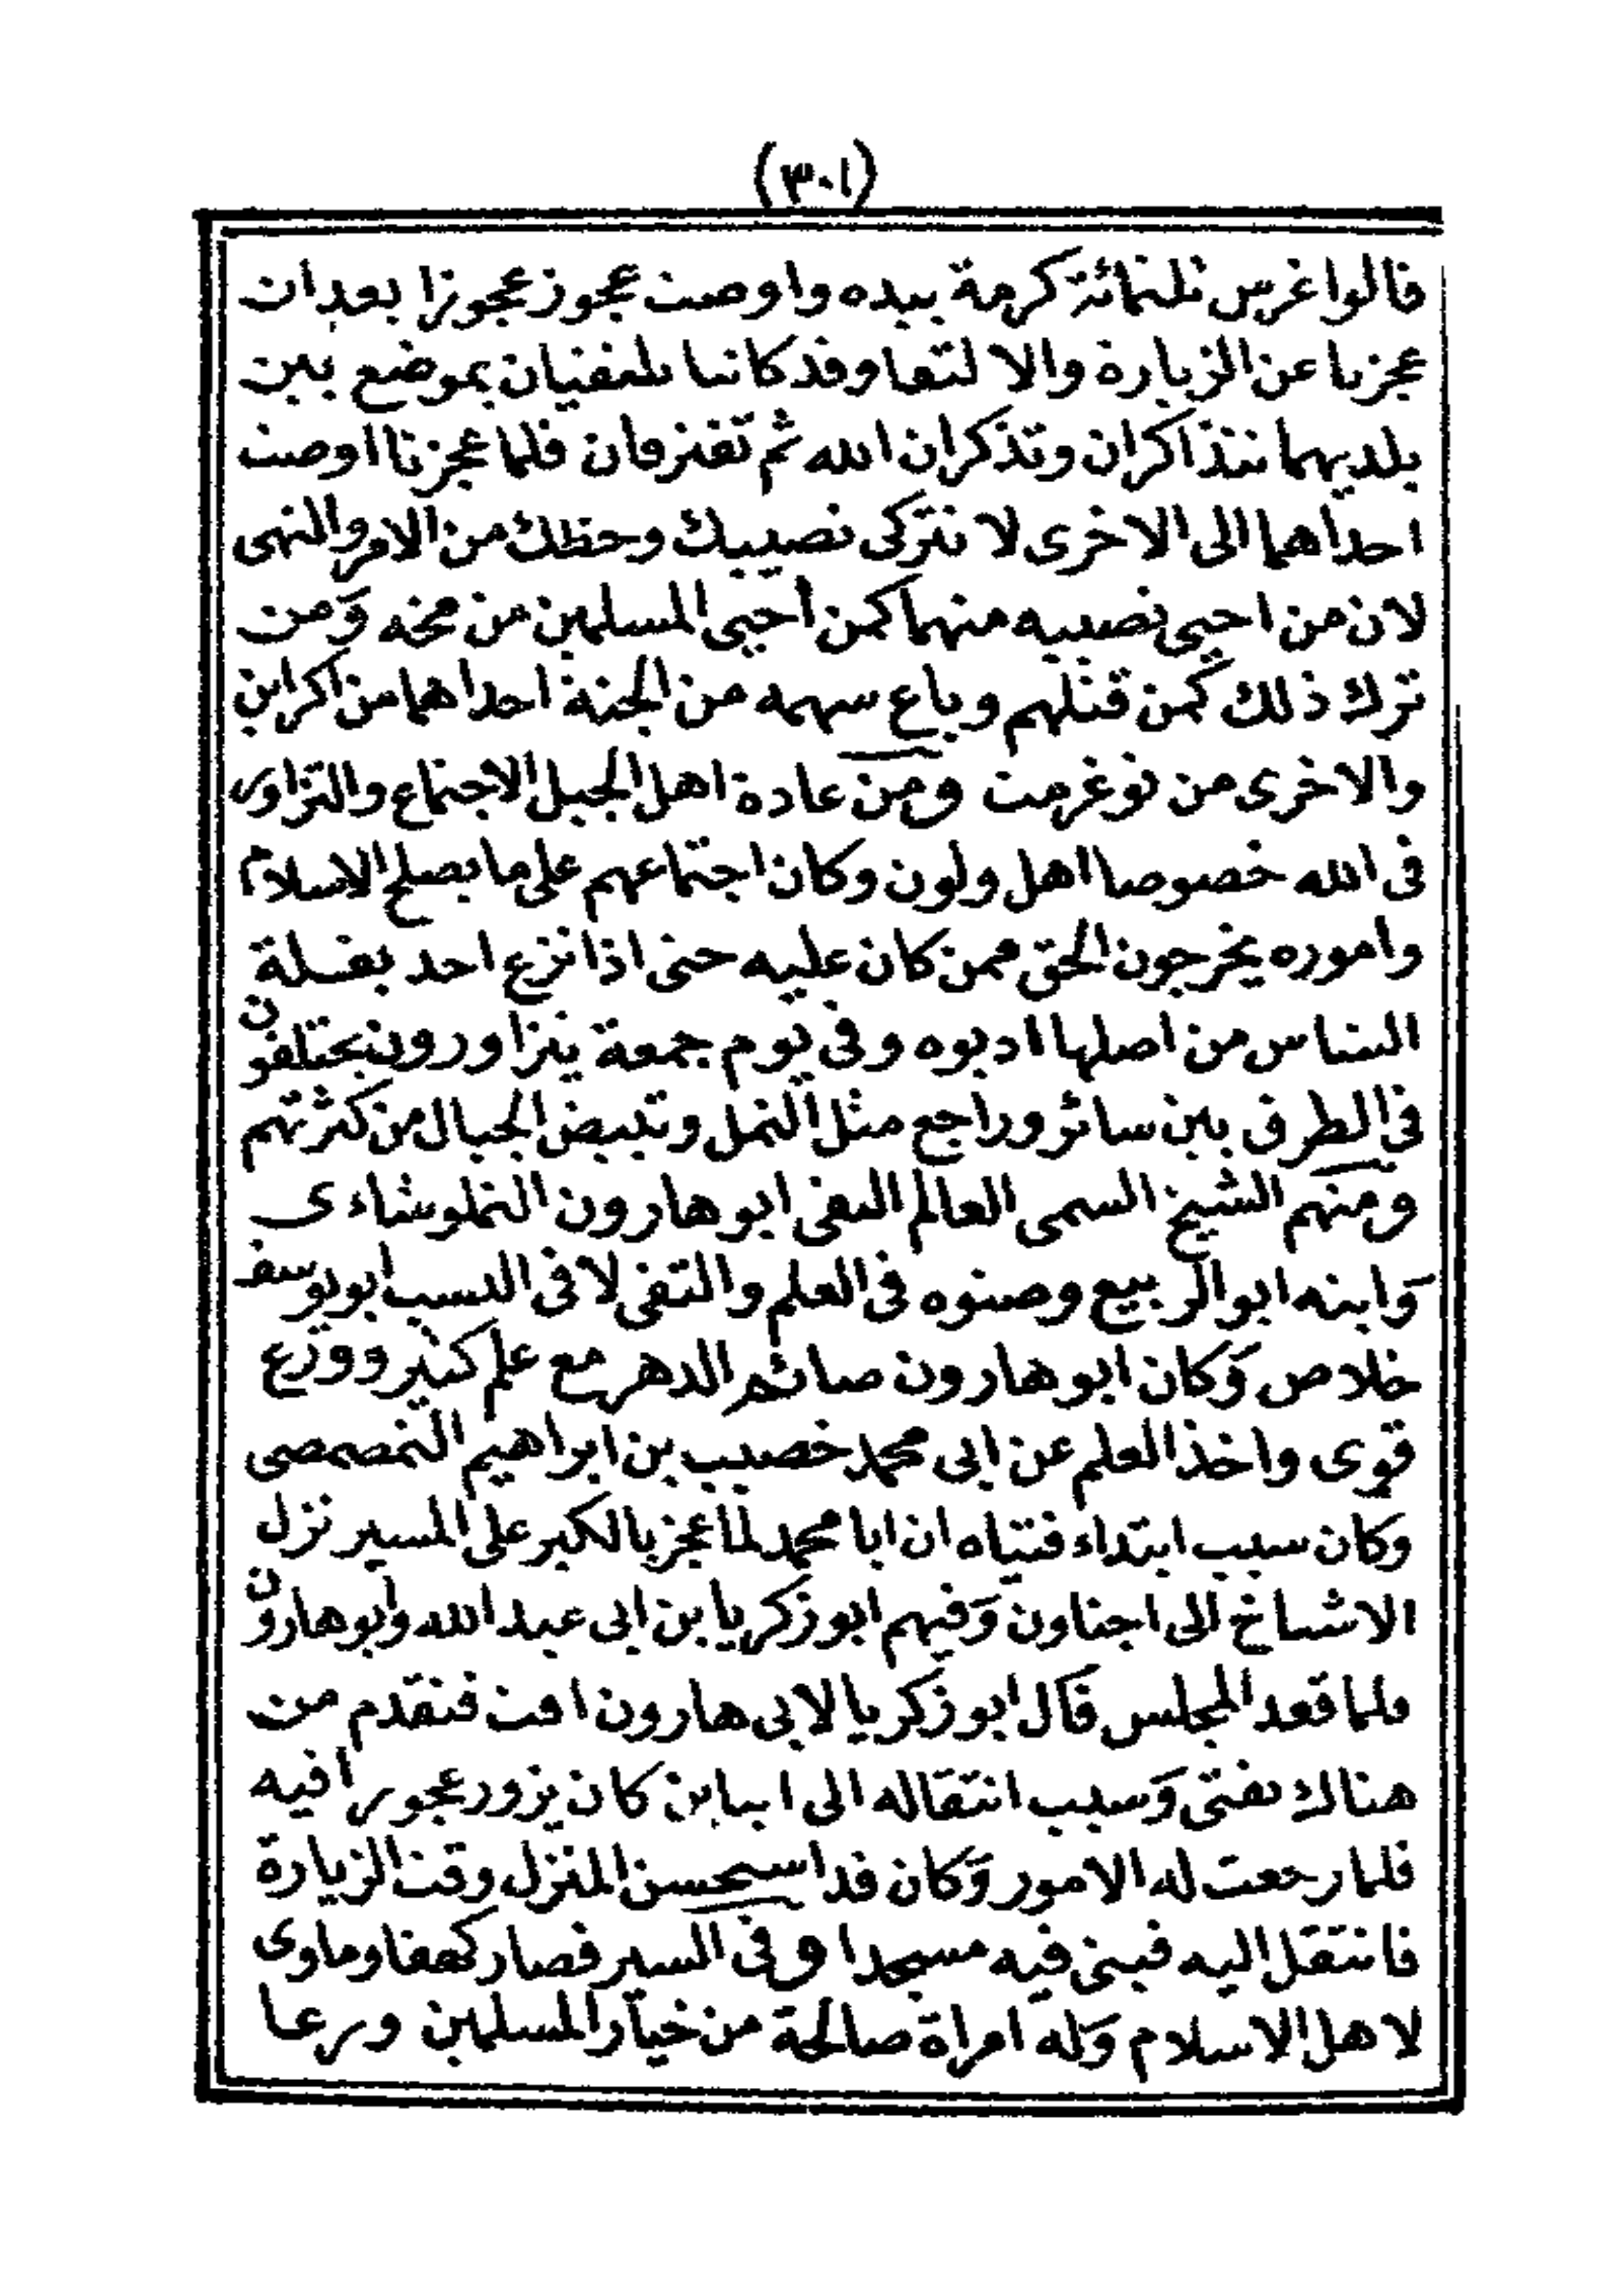 (٣٠١)
قالوا غرس ثلثمائة كرمة بيده واوصت عجوز عجوزا بعد ان
عجزتا عن الزيارة والالتقا وقد كانتا تلتقيان بموضع بين
بلديهما تتذاكران وتذكران الله ثم تفترقان فلما عجزتا اوصت
احداهما الى الاخرى لا تتركى نصيبك وحظك من الامر والنهى
لان من احيى نصيبه منهما كمن احيى المسلمين من محنه ومن
ترك ذلك كمن قتلهم وباع سهمه من الجنة احداهما من اكراين
والاخرى من توغرمت ومن عادة اهل الجبل الاجتماع والتزاور
فى الله خصوصا اهل ولون وكان اجتماعهم على ما يصلح الاسلام
واموره يخرجون الحق ممن كان عليه حتى اذا نزع احد بفسلة
الناس من اصلها ادبوه وفى يوم جمعة يتزاورون يختلفون
فى الطرق بين سائر وراجع مثل النمل وتبيض الجبال من كثرتهم
ومنهم الشيخ السمى العالم التقى ابو هارون التملوشاءى
وابنه ابو الربيع وصنوه فى العلم والتقى لا فى النسب ابو يوسف
خلاص وكان ابو هارون صائم الدهر مع علم كثير وورع
قوى واخذ العلم عن ابى محمد خصيب بن ابراهيم التمصمصى
وكان سبب ابتداء فتياه ان ابا محمد لما عجز بالكبر على المسير نزل
الاشياخ الى اجناون وفيهم ابو زكريا بن ابى عبد الله وابو هارون
ولما قعد المجلس قال ابو زكريا لابى هارون افت فتقدم من
هناك يفتى وسبب انتقاله الى ابناين كان يزور عجوزا فيه
فلما رجعت له الامور وكان قد استحسن المنزل وقت الزيارة
فانتقل اليه فبنى فيه مسجدا وفى السير فصار كهفا وماوى
لاهل الاسلام وله امراة صالحة من خيار المسلمين ورعا